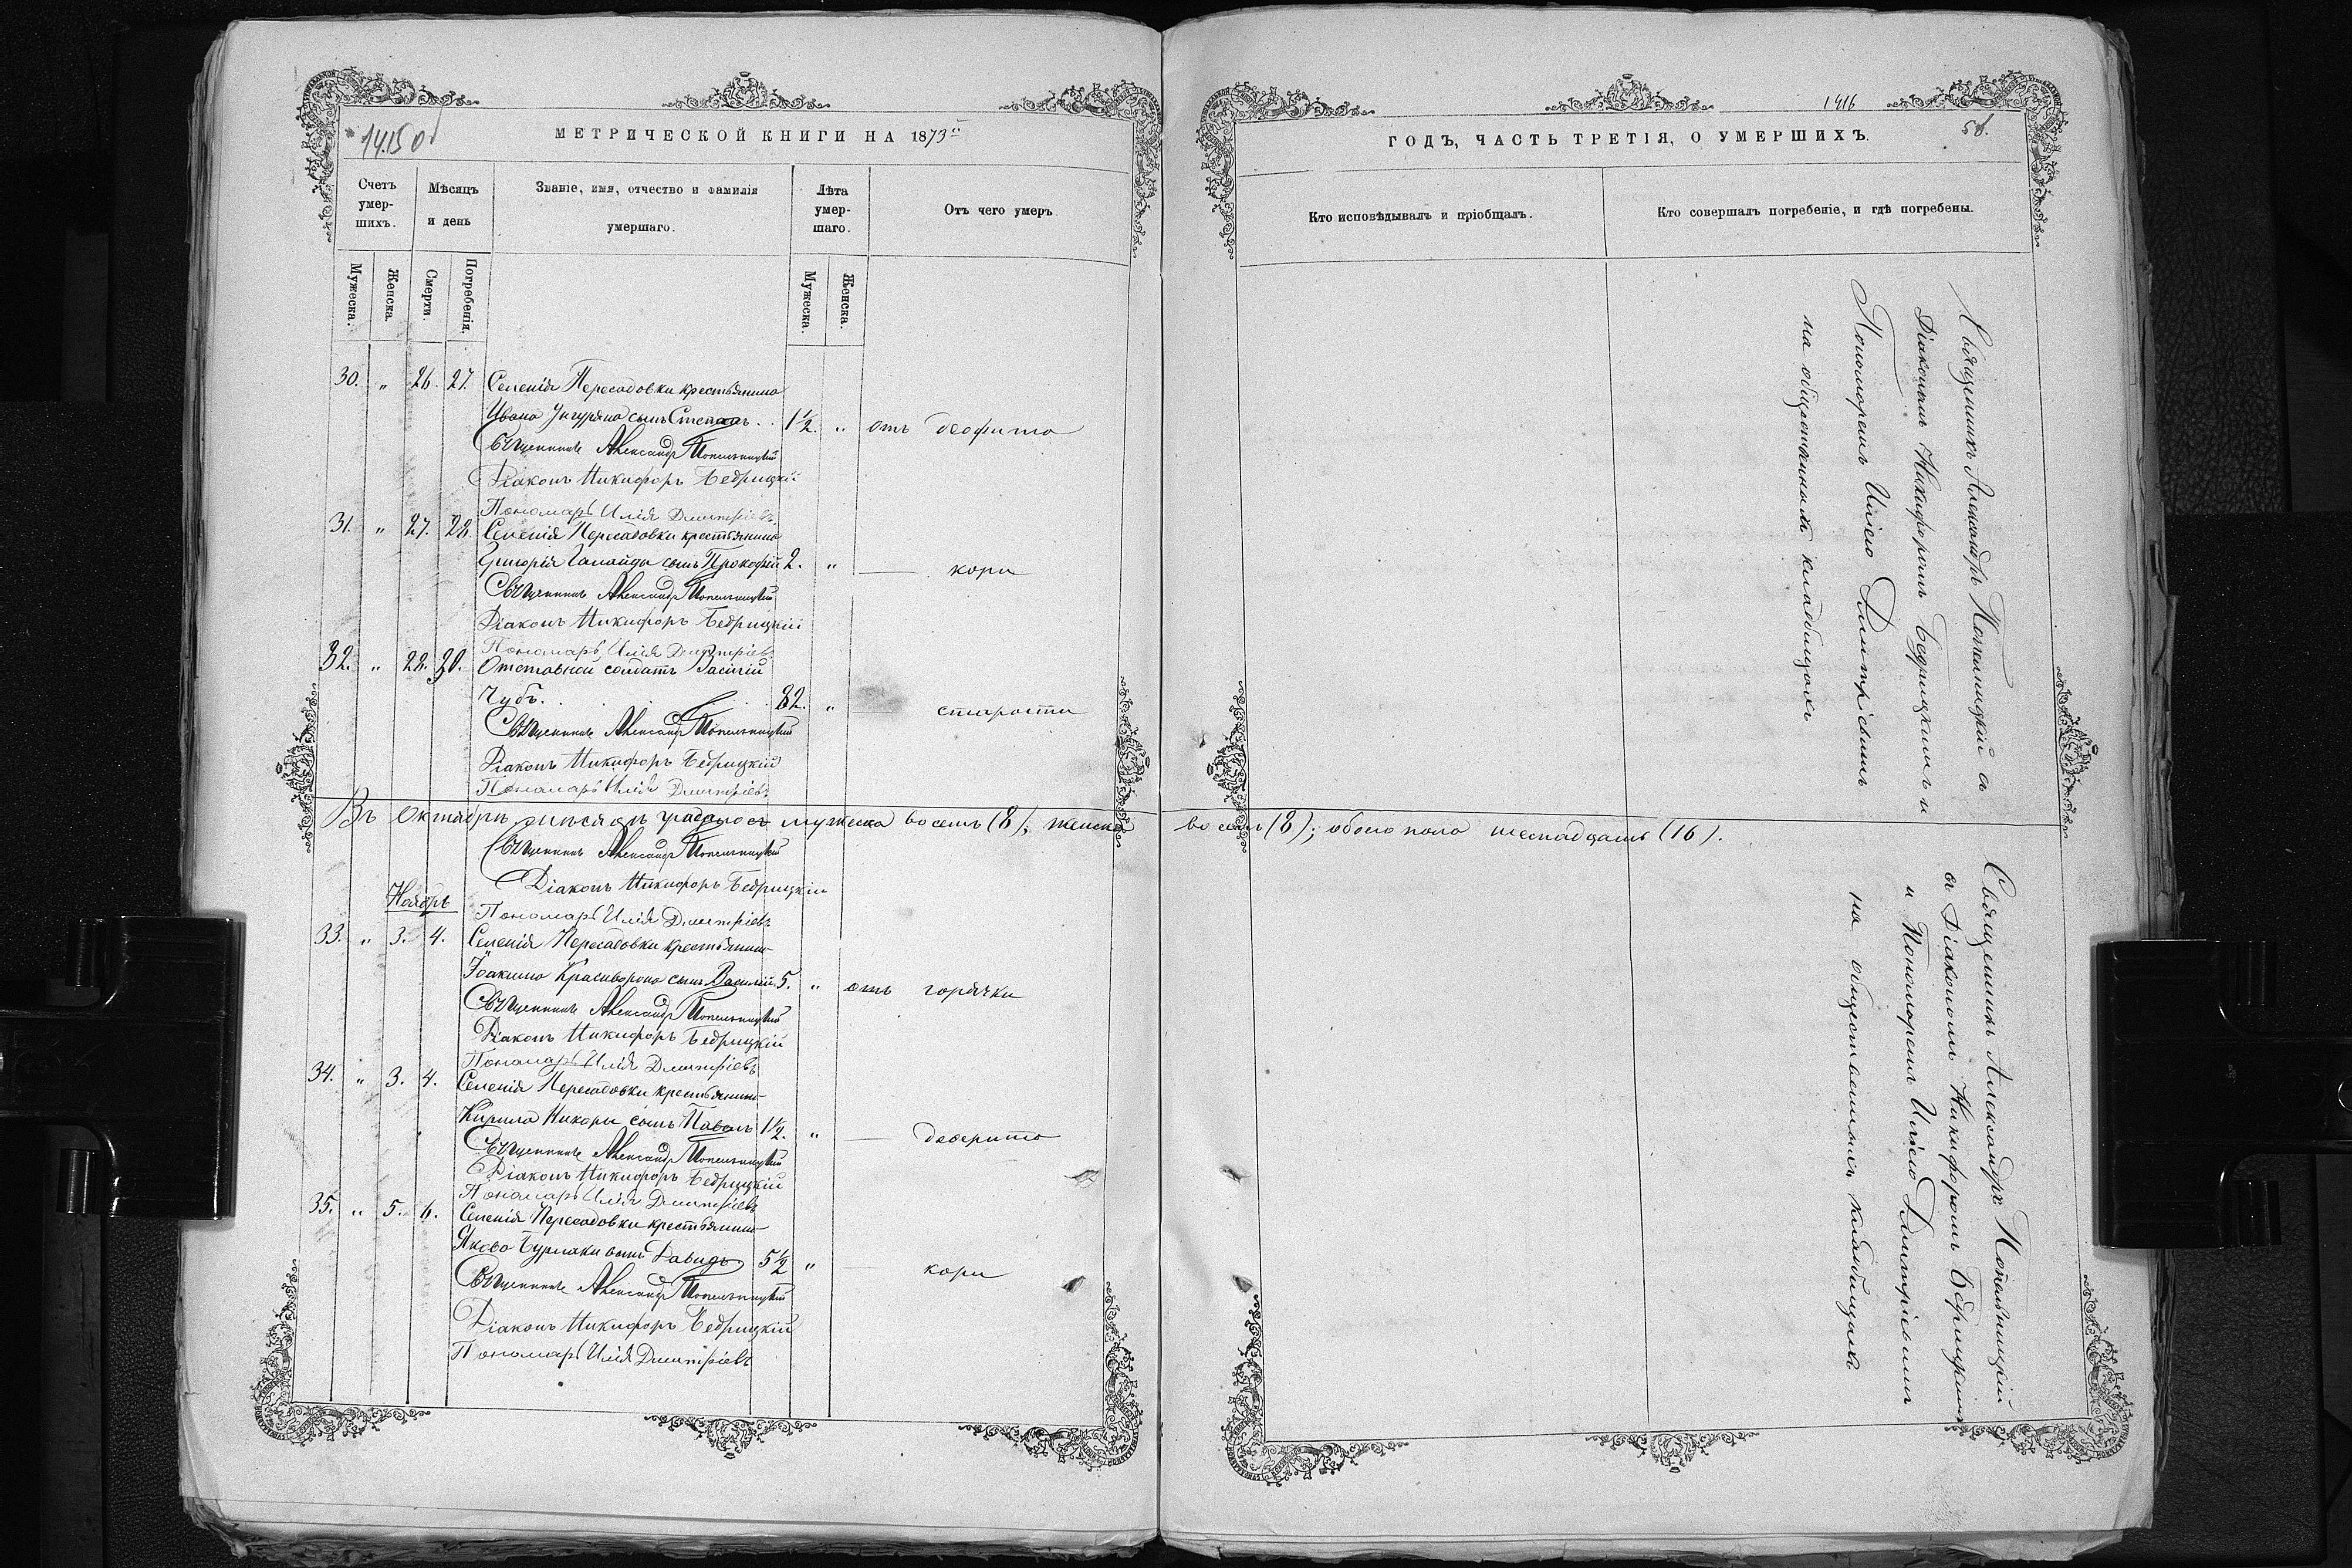 1415 об
МЕТРИЧЕСКОЙ КНИГИ НА 1873й
Счетъ умер-шихъ.
Мѣсяцъ и день
Званіе, имя, отчество и фамилія умершаго.
Лѣта умер-шаго.
Отъ чего умеръ
Мужеска.
Женска.
Смерти.
Погребенія.
Мужеска.
Женска.
30. " 26. 27. Селенія Пересадовки крестьянина
Ивана Унгуряна сынъ Степанъ . . 1½. " отъ
Священникъ Александръ Попельницкій
Діаконъ Никифоръ Бедрицкій
Пономарь Илія Дмитріевъ
31. " 27. 28. Селенія Пересадовки крестьянина
Григорія сынъ Прокофій 2. " — кори
Священникъ Александръ Попельницкій
Діаконъ Никифоръ Бедрицкій
Пономарь Илія Дмитріевъ
32. " 28. 30. Отставной солдатъ Василій
Чубъ . . . . . 82. " старости
Священникъ Александръ Попельницкій
Діаконъ Никифоръ Бедрицкій
Пономарь Илія Дмитріевъ
Въ Октябрѣ мужеска восемь (8), женска восемь (8); обоего пола шеснадцать (16).
Священникъ Александръ Попельницкій
Діаконъ Никифоръ Бедрицкій
Ноябрь
Пономарь Илія Дмитріевъ
33. " 3. 4. Селенія Пересадовки крестьянина
Іоакима сынъ Василій 5. " отъ горячки
Священникъ Александръ Попельницкій
Діаконъ Никифоръ Бедрицкій
Пономарь Илія Дмитріевъ
34. " 3. 4. Селенія Пересадовки крестьянина
Кирила Никоры сынъ Павелъ 1½. " —
Священникъ Александръ Попельницкій
Діаконъ Никифоръ Бедрицкій
Пономарь Илія Дмитріевъ
35. " 5. 6. Селенія Пересадовки крестьянина
Якова Бурлаки сынъ Давидъ 5½ " — кори
Священникъ Александръ Попельницкій
Діаконъ Никифоръ Бедрицкій
Пономарь Илія Дмитріевъ
1416
58.
ГОДЪ, ЧАСТЬ ТРЕТІЯ, О УМЕРШИХЪ.
Кто исповѣдывалъ и пріобщалъ.
Кто совершалъ погребеніе, и гдѣ погребены.
Священникъ Александръ Попельницкій съ
Діакономъ Никифоромъ Бедрицкимъ и
Пономаремъ Иліею Димитріевымъ
на кладбищахъ
Священникъ Александръ Попельницкій
съ Діакономъ Никифоромъ Бедрицкимъ
и Пономаремъ Иліею Димитріевымъ
на общественныхъ кладбищахъ